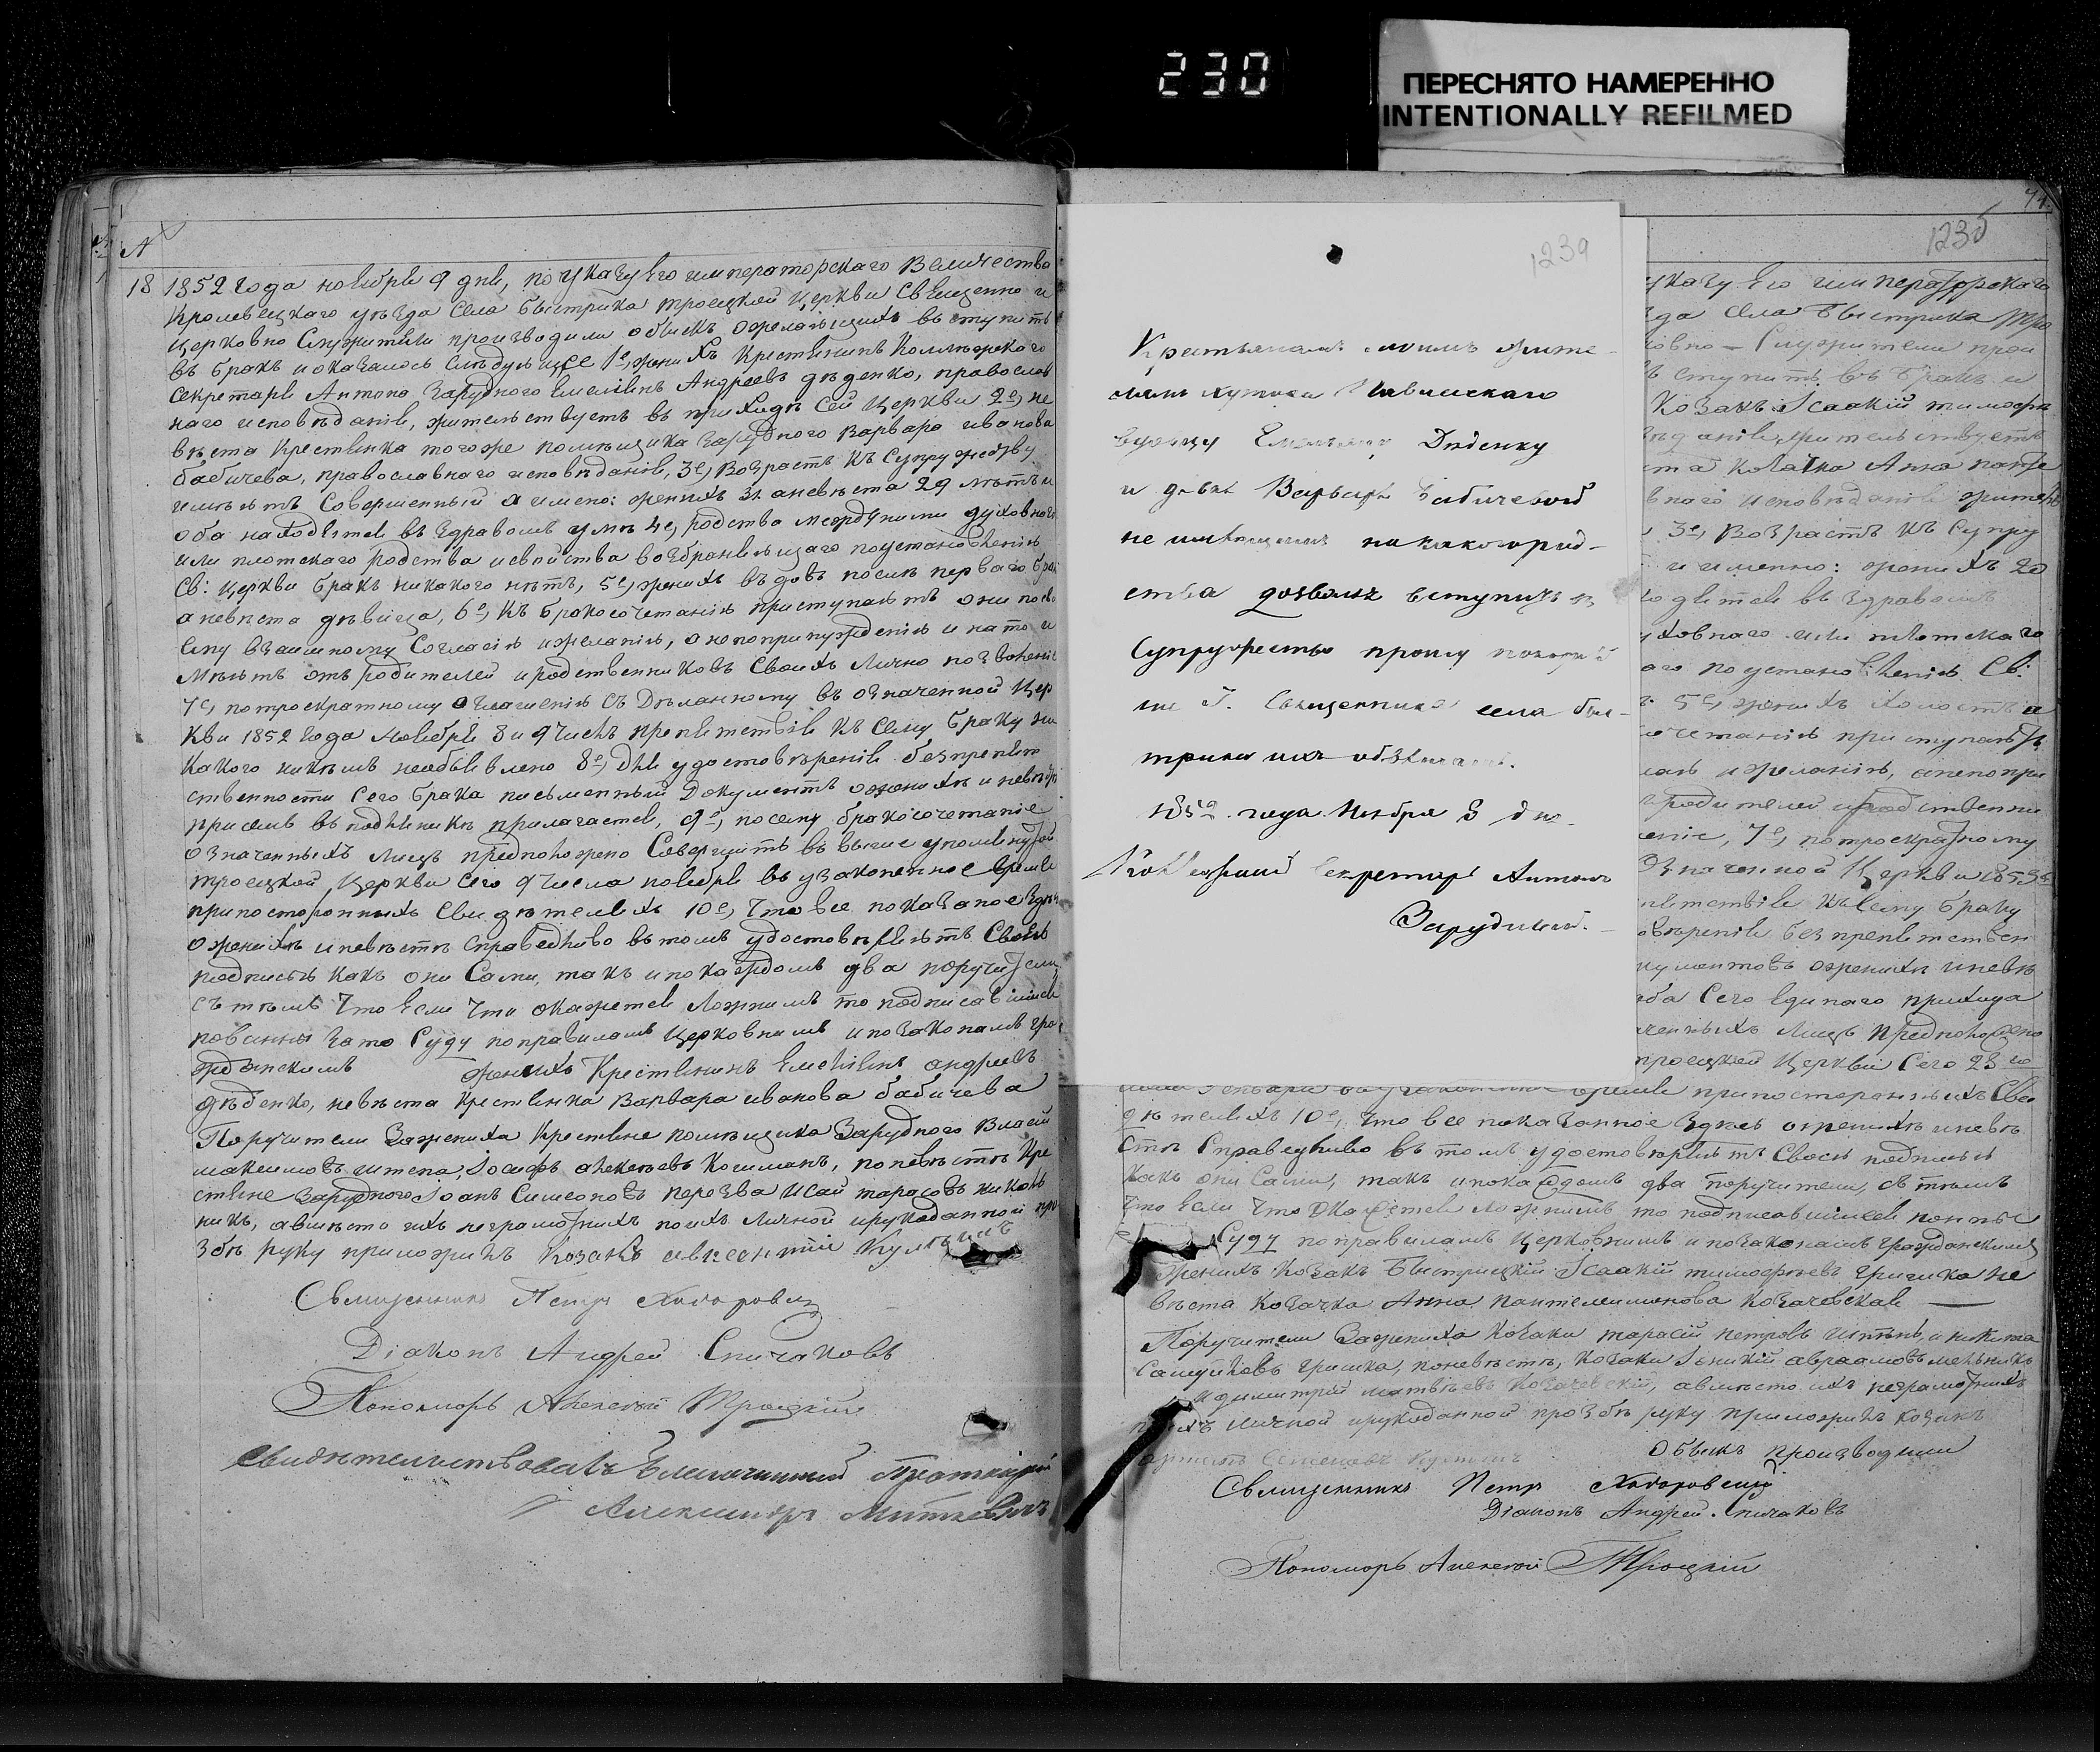 230
ПЕРЕСНЯТО НАМЕРЕННО
INTENTIONALLY REFILMED
№
18 1852 года ноября 9 дня, по указу Его императорскаго Величества
Кролевецкаго уезда села Быстрика троецкой Церкви Священно и
Церковно Служители производили обыскъ о желающихъ вступить
въ бракъ и оказалось следующее 1е, женихъ Крестьянинъ Коллежскаго
Секретаря Антона Зарудного Емелиянъ Андреевъ Дѣденко, православ
наго исповѣданія, жительствуетъ въ приходѣ сей Церкви 2е, не
вѣста Крестьянка тогоже помѣщика Зарудного Варвара иванова
бабичева, православнаго исповѣданія, 3е, Возрастъ къ Супружеству
имѣютъ Совершенный а имено: женихъ 31 а невѣста 29 лѣтъ и
оба находятся въ здравомъ умѣ 4е, родства между ними духовнаго
или плотскаго родства и свойства возбраняющаго по установленію
Св: Церкви бракъ никакого нѣтъ, 5е, женихъ вдовъ послѣ перваго брака
а невѣста дѣвица, 6е, къ бракосочетанію приступаютъ они по сво
ему взаимному Согласію и желанію, а не по принужденію и на то и
мѣютъ отъ родителей и родственниковъ Своихъ Лично позволеніе
7е, по троекратному оглашенію Сдѣланному въ означенной Цер
кви 1852 года Ноября 8 и 9 числъ препятствія къ Сему браку ни
какого никѣмъ необъявлено 8е, Для удостовѣренія безпрепят
ственности Сего брака письменный документъ о женихѣ и невѣстѣ
при семъ въ подлинникѣ прилагается, 9е, по сему бракосочетаніе
означенныхъ лицъ предположено Совершить въ выше упомянутой
троецкой Церкви Сего 9 числа ноября въ узаконенное время
при постороннихъ Свидѣтеляхъ 10е, Что все показаное здѣсь
о женихѣ и невѣстѣ справедливо въ томъ удостовѣряютъ Своею
подписью какъ они Сами, такъ и по каждомъ два поручители,
съ тѣмъ Что Если Что окажется Ложнымъ то подписавшіися
повинны за то Суду по правиламъ Церковнымъ и по законамъ гра
жданскимъ женихъ Крестьянинъ Емелиянъ андреевъ
дѣденко, невѣста Крестьянка Варвара иванова бабичева
Поручители За жениха Крестьяне помѣщика Зарудного Власій
максимовъ Іосифъ алексѣевъ по невѣстѣ Кре
стьяне Зарудного Іоанъ Симеоновъ Исай тарасовъ
никъ, а вмѣсто ихъ неграмотныхъ по ихъ Личной и рукоданной про
збѣ руку приложилъ Козакъ
Священникъ Петръ Ходоровскій
Діаконъ Андрей Спичаковъ
Пономарь Алексѣй Троцкій
Свидѣтельствовалъ Благочинный Протоіерей
Александръ Миткевичъ
1239
Крестьянамъ моимъ жите-
лямъ хутора
вдовцу Емельяну Диденку
и дѣвкѣ Варварѣ Бабичевой
не имѣющимъ никакого род-
ства дозволяю вступить въ
Супружество прошу
ше Г. Священника села Бы-
трика ихъ обвѣнчать.
1852 года Ноября 8 дня.
Коллежский Секретарь Антонъ
Зарудный.
указу Его императорскаго
да села Быстрика Тро
ковно-Служители прои
вступить въ бракъ и
Козакъ Ісаакій тимофѣ
ѣданія, жительствуетъ
ста козачка Анна панте
внаго исповѣданія житель
3е, Возрастъ къ Супру
и именно: женихъ 20
ходятся въ здравомъ
уховнаго или плотскаго
аго по установленію Св:
5е, женихъ холостъ а
сочетанію приступаютъ
и желанію, а не по при
родителей и родственни
еніе, 7е, по троекратному
означенной Церкви 1853
пятствія къ Сему браку
овѣренія безпрепятствен
кументовъ о женихѣ и невѣ
оба Сего единаго прихода
аченныхъ Лицъ предположено
троецкей Церкви Сего 23го
Генваря въ узаконенное время при постороннихъ Сви
дѣтеляхъ 10е, Что все показанное здѣсь о женихѣ и невѣ
стѣ Справедливо въ томъ удостовѣряютъ Своею подписью
какъ они Сами, такъ и по каждомъ два поручители, съ тѣмъ
Что Если Что Окажется Ложнымъ то подписавшіися повинны
Суду по правиламъ Церковнымъ и по законамъ гражданскимъ
женихъ козакъ Быстрицкій Ісаакій тимофѣевъ гришка не
вѣста козачка Анна пантелеимонова козачевская —
Поручители За жениха Козаки тарасій петровъ и никита
Самуйловъ гришка, по невѣстѣ, козаки авраамовъ мельникъ
и димитрій матвѣевъ козачевскій, а вмѣсто ихъ неграмотныхъ
по ихъ личной и рукоданной прозбѣ руку приложилъ козакъ
Обыскъ производили
Священникъ Петръ Ходоровскій
Діаконъ Андрей Спичаковъ
Пономарь Алексѣй Троцкій